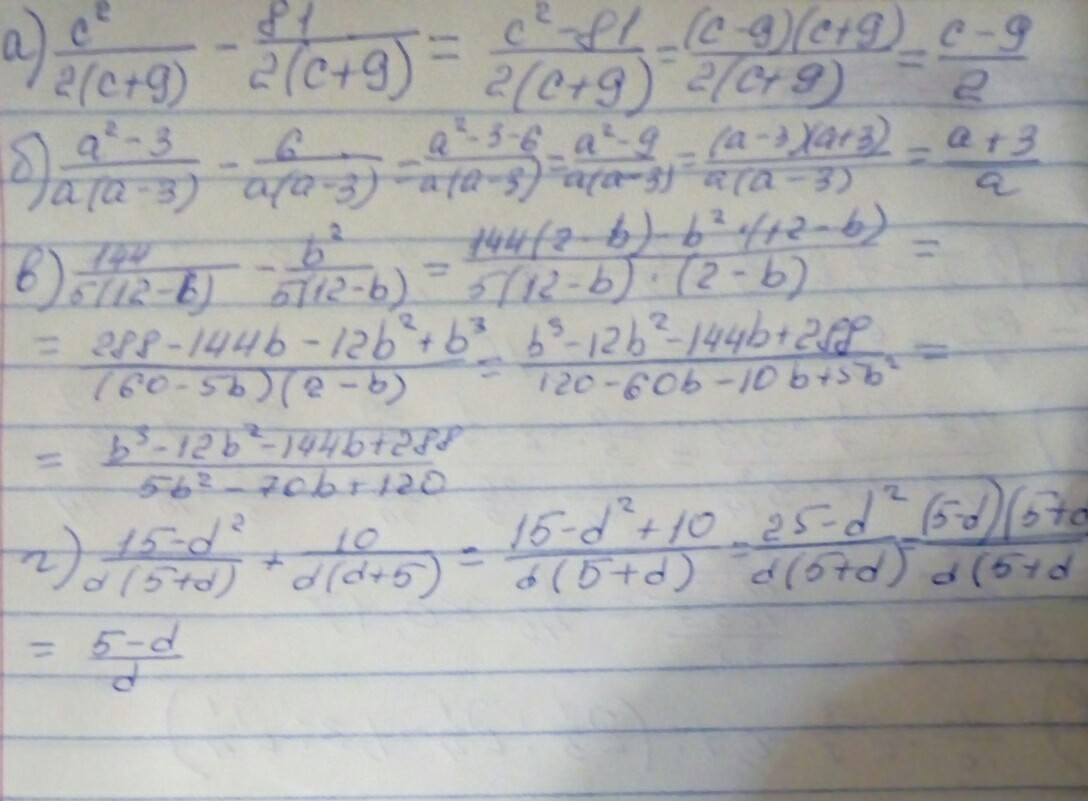 а) c²/2(c+9) - 81/2(c+9) = c²-81/2(c+9) = (c-9)(c+9)/2(c+9) = c-9/2
б) a²-3/a(a-3) - 6/a(a-3) = a²-3-6/a(a-3) = a²-9/a(a-3) = (a-3)(a+3)/a(a-3) = a+3/a
в) 144/5(12-b) - b²/5(12-b) = 144(2-b)-b²·(12-b)/5(12-b)·(2-b) =
= 288-144b-12b²+b³/(60-5b)(2-b) = b³-12b²-144b+288/120-60b-10b+5b² =
= b³-12b²-144b+288/5b²-70b+120
г) 15-d²/d(5+d) + 10/d(d+5) = 15-d²+10/d(5+d) = 25-d²/d(5+d) = (5-d)(5+d/d(5+d
= 5-d/d